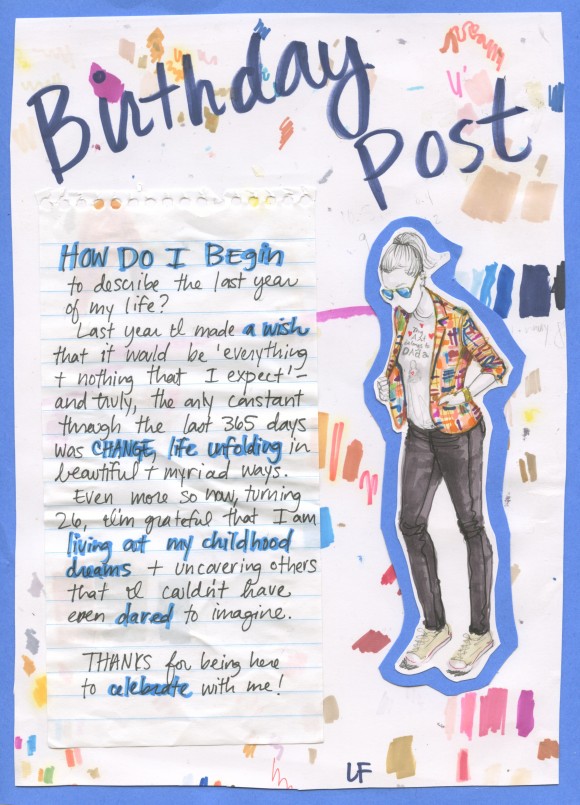 Birthday
Post
HOW DO I BEGIN
to describe the last year
of my life?
Last year I made a wish
that it would be 'everything
+ nothing that I expect' –
and truly, the only constant
through the last 365 days
was CHANGE, life unfolding in
beautiful + myriad ways.
Even more so now, turning
26, I'm grateful that I am
living out my childhood
dreams + uncovering others
that I couldn't have
even dared to imagine.
THANKS for being here
to celebrate with me!
LF